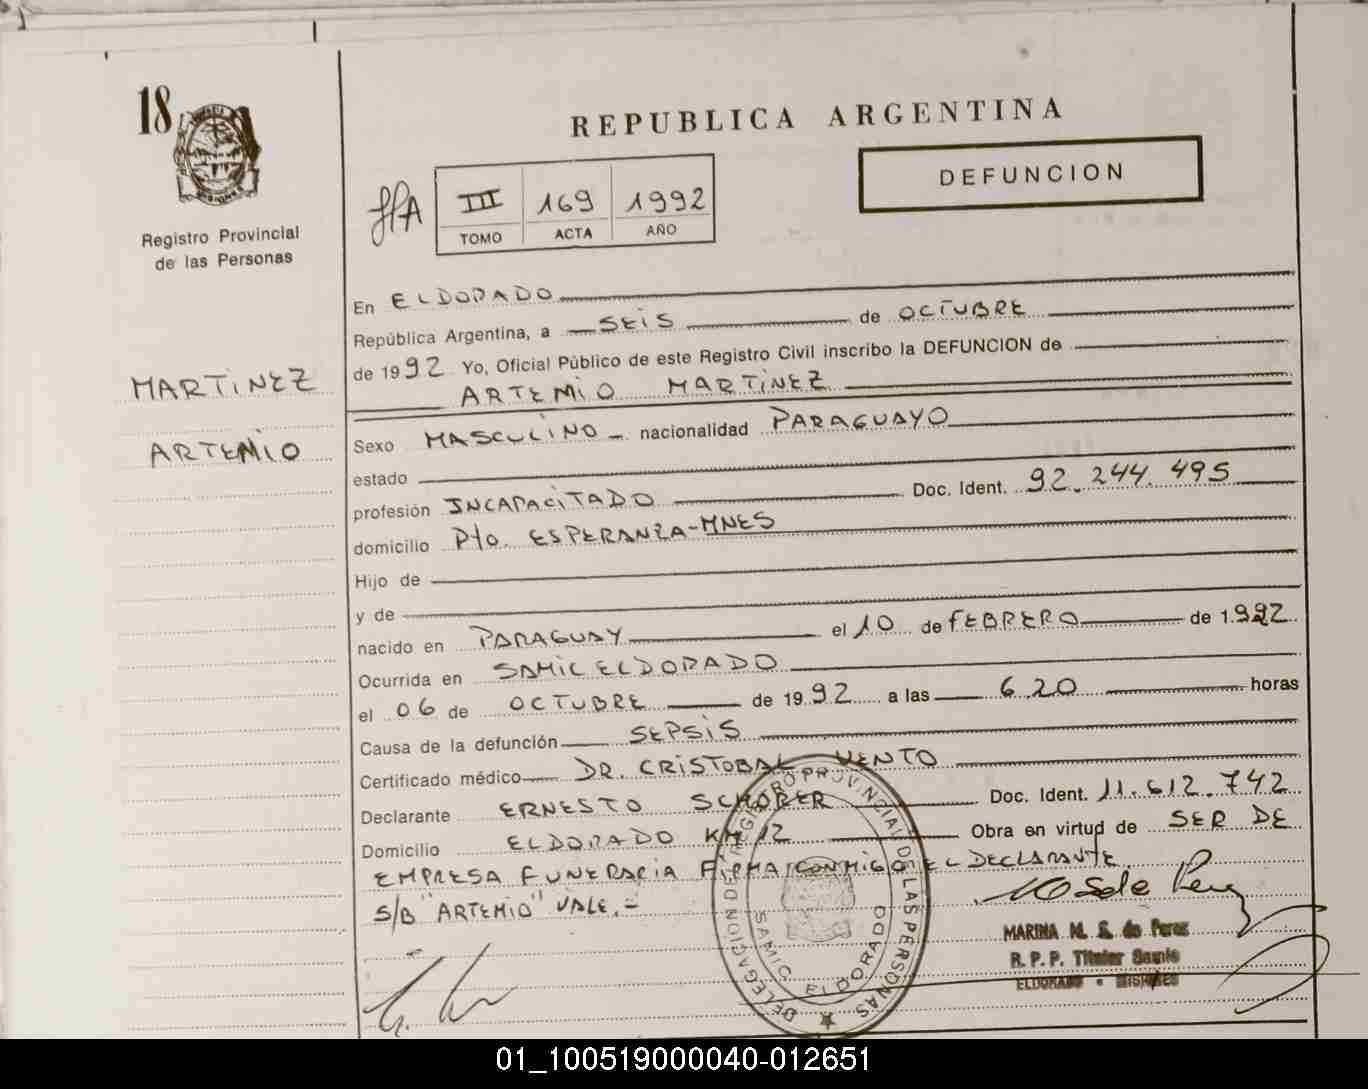 18
REPUBLICA ARGENTINA
DEFUNCION
III 169 1992
TOMO ACTA AÑO
Registro Provincial
de las Personas
MARTINEZ
ARTEMIO
En ELDORADO
República Argentina, a SEIS de OCTUBRE
de 1992 Yo, Oficial Público de este Registro Civil inscribo la DEFUNCION de
ARTEMIO MARTINEZ
Sexo MASCULINO nacionalidad PARAGUAYO
estado
profesión INCAPACITADO Doc. Ident. 92.244.495
domicilio Pto. ESPERANZA-MNES
Hijo de
y de
nacido en PARAGUAY el 10 de FEBRERO de 1992
Ocurrida en SAMIC ELDORADO
el 06 de OCTUBRE de 1992 a las 6.20 horas
Causa de la defunción SEPSIS
Certificado médico DR. CRISTOBAL VENTO
Declarante ERNESTO SCHORER Doc. Ident. 11.612.742
Domicilio ELDORADO KM 12 Obra en virtud de SER DE
EMPRESA FUNERARIA FIRMA CONMIGO EL DECLARANTE.
S/B "ARTEMIO" VALE.-
DELEGACION DE REGISTRO PROVINCIAL DE LAS PERSONAS
SAMIC ELDORADO
MARINA M. S. de Perez
R. P. P. Titular Samic
ELDORADO - MISIONES
01_100519000040-012651